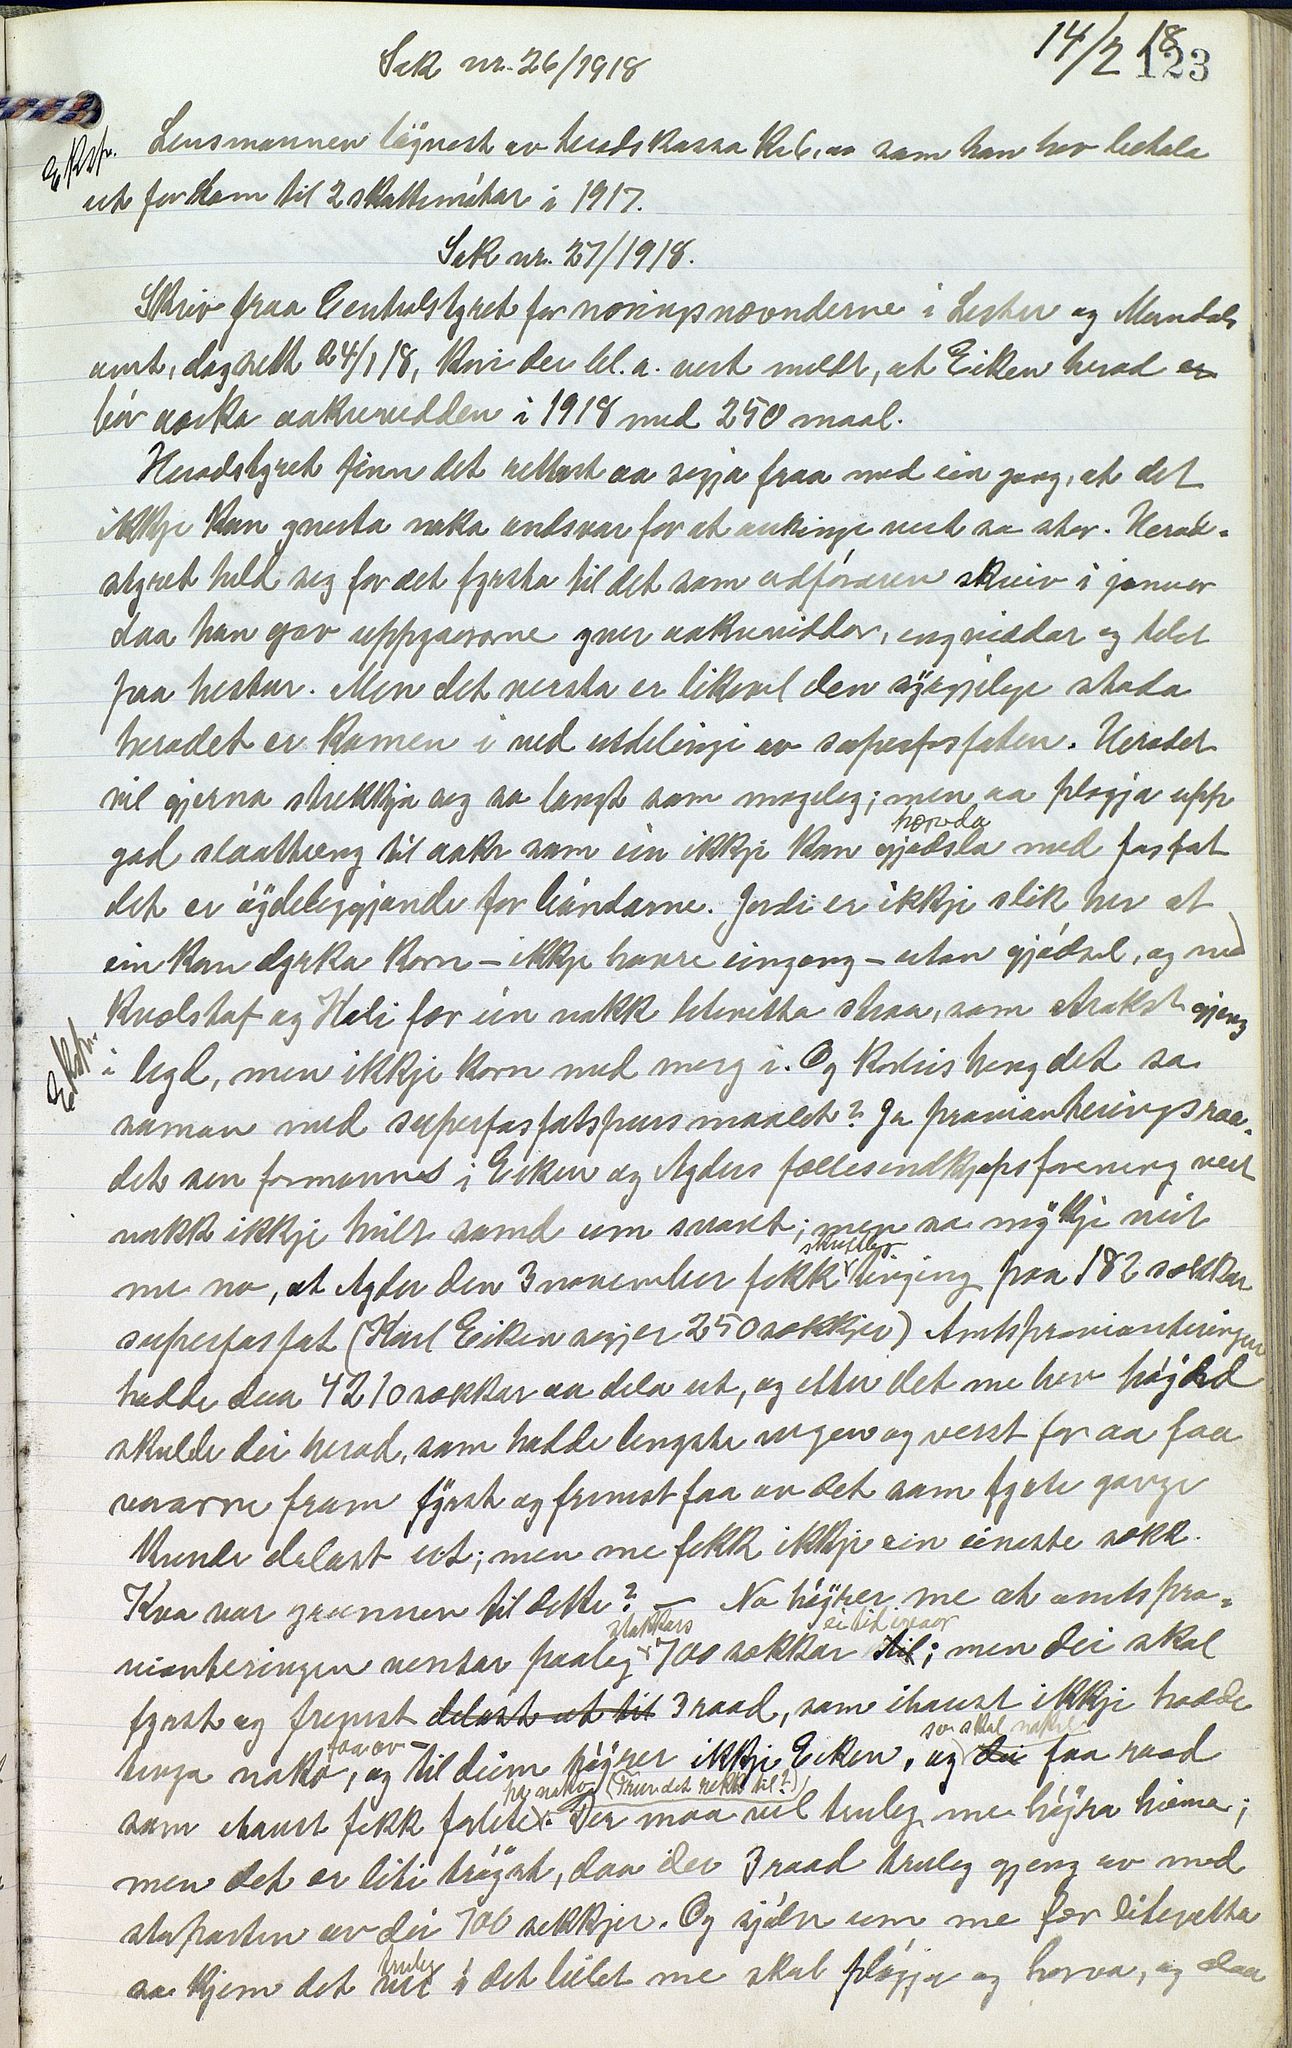 14/2 18
123
Sak nr. 26/1918
Ekstr.
Lensmannen løgnast av heradskassa Kr 6,00 som han hev betala
ut for ham til 2 skattemøtar i 1917.
Sak nr. 27/1918.
Skriv fraa Centralstyret for næringsnævnderne i Lister og Mandals
amt, dagsett 24/1 18, kori der bl. a. vert meldt, at Eiken herad er
bør auka aakrevidden i 1918 med 250 maal.
Heradstyret finn det rettast aa segja fraa med ein gong, at det
ikkje kan gnesta noko andsvar for at aukingi vert so stor. Herad-
styret held seg for det fyrsta til det som ordføraren skreiv i januar
daa han gav uppgaavorne yver aakreviddor, engviddar og talet
paa hestar. Men det versta er likevel den syrgjelege stoda
heradet er komen i ved utdelingi av superfosfaten. Heradet
vil gjerna strekkja seg so langt som mogeleg; men aa pløgja upp
god slaatteeng til aaker som ein ikkje kan gjødsla med fosfat
det er øydeleggjande for bøndarne. Jordi er ikkje slik her at
ein kan dyrka korn – ikkje havre eingong – utan gjødsel, og med
Kvælstof og Kali fær ein nokk litevetta straa, som strakst gjeng
Ekstr.
i legd, men ikkje korn med merg i. Og korleis heng det so
saman med superfosfatspursmaalet? Ja provianteringsraa-
det sin formann i Eiken og Agders fællesindkjøpsforening vert
nokk ikkje heilt samd um svaret; men so mykje veit
me no, at Agder den 3 november fekk skriftleg tinging paa 182 sekkar
superfosfat (Karl Eiken segjer 250 sekkjer) Amtsprovianteringen
hadde daa 4210 sekkar aa dela ut, og etter det me hev høyrd
skulde dei herad, som hadde lengste vegen og verst for aa faa
vararne fram fyrst og fremst faa av det som fyrste gongje
kunde delast ut; men me fekk ikkje ein eineste sekk.
Kva var grunnen til dette? – No høyrer me at amtspro-
vianteringen ventar paaleg stakkars 700 sekkar til ei tid ivaar; men dei skal
fyrst og fremst delast ut til 3 raad, som ihaust ikkje hadde
tinga noko, faa av – og til deim høyrer ikkje Eiken, og dei so skal nokre faa raad
som ihaust fekk forlite faa noko (Trur det rekk til?). Der maa vel truleg me høyra heime;
men det er liti trøyst, daa dei 3 raad truleg gjeng av med
storparten av dei 700 sekkjer. Og sjølv um me fær litevetta
so kjem det vel truleg i det bilet me skal pløgja og horva, og daa